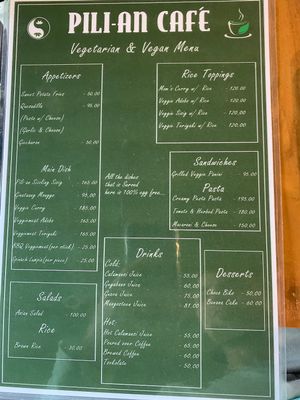 PILI-AN CAFÉ
Vegetarian & Vegan Menu
Appetizers
Sweet Potato Fries - 80.00
Quesadilla - 95.00
(Pesto w/ Cheese)
(Garlic & Cheese)
Chicharon - 50.00
Main Dish
Pili-an Sizzling Sisig - 165.00
Ginataang Munggo - 95.00
Veggie Curry - 185.00
Veggiemeat Adobo - 165.00
Veggiemeat Teriyaki - 165.00
BBQ Veggiemeat(per stick) - 25.00
Spinach Lumpia(per piece) - 25.00
Salads
Asian Salad 100.00
Rice
Brown Rice - 30.00
All the dishes
that is served
here is 100% egg free...
Drinks
Cold:
Calamansi Juice 55.00
Guyabano Juice - 60.00
Guava Juice - 75.00
Mangosteen Juice - 81.00
Hot:
Hot Calamansi Juice - 55.00
Poured over Coffee - 65.00
Brewed Coffee - 60.00
Tsokolate - 50.00
Rice Toppings
Mom's Curry w/ Rice - 120.00
Veggie Adobo w/ Rice - 120.00
Veggie Sisig w/ Rice - 120.00
Veggie Teriyaki w/ Rice - 120.00
Sandwiches
Grilled Veggie Panini - 95.00
Pasta
Creamy Pesto Pasta - 195.00
Tomato & Herbed Pasta - 180.00
Macaroni & Cheese - 150.00
Desserts
Choco Bibe - 50.00
Banana Cake - 60.00